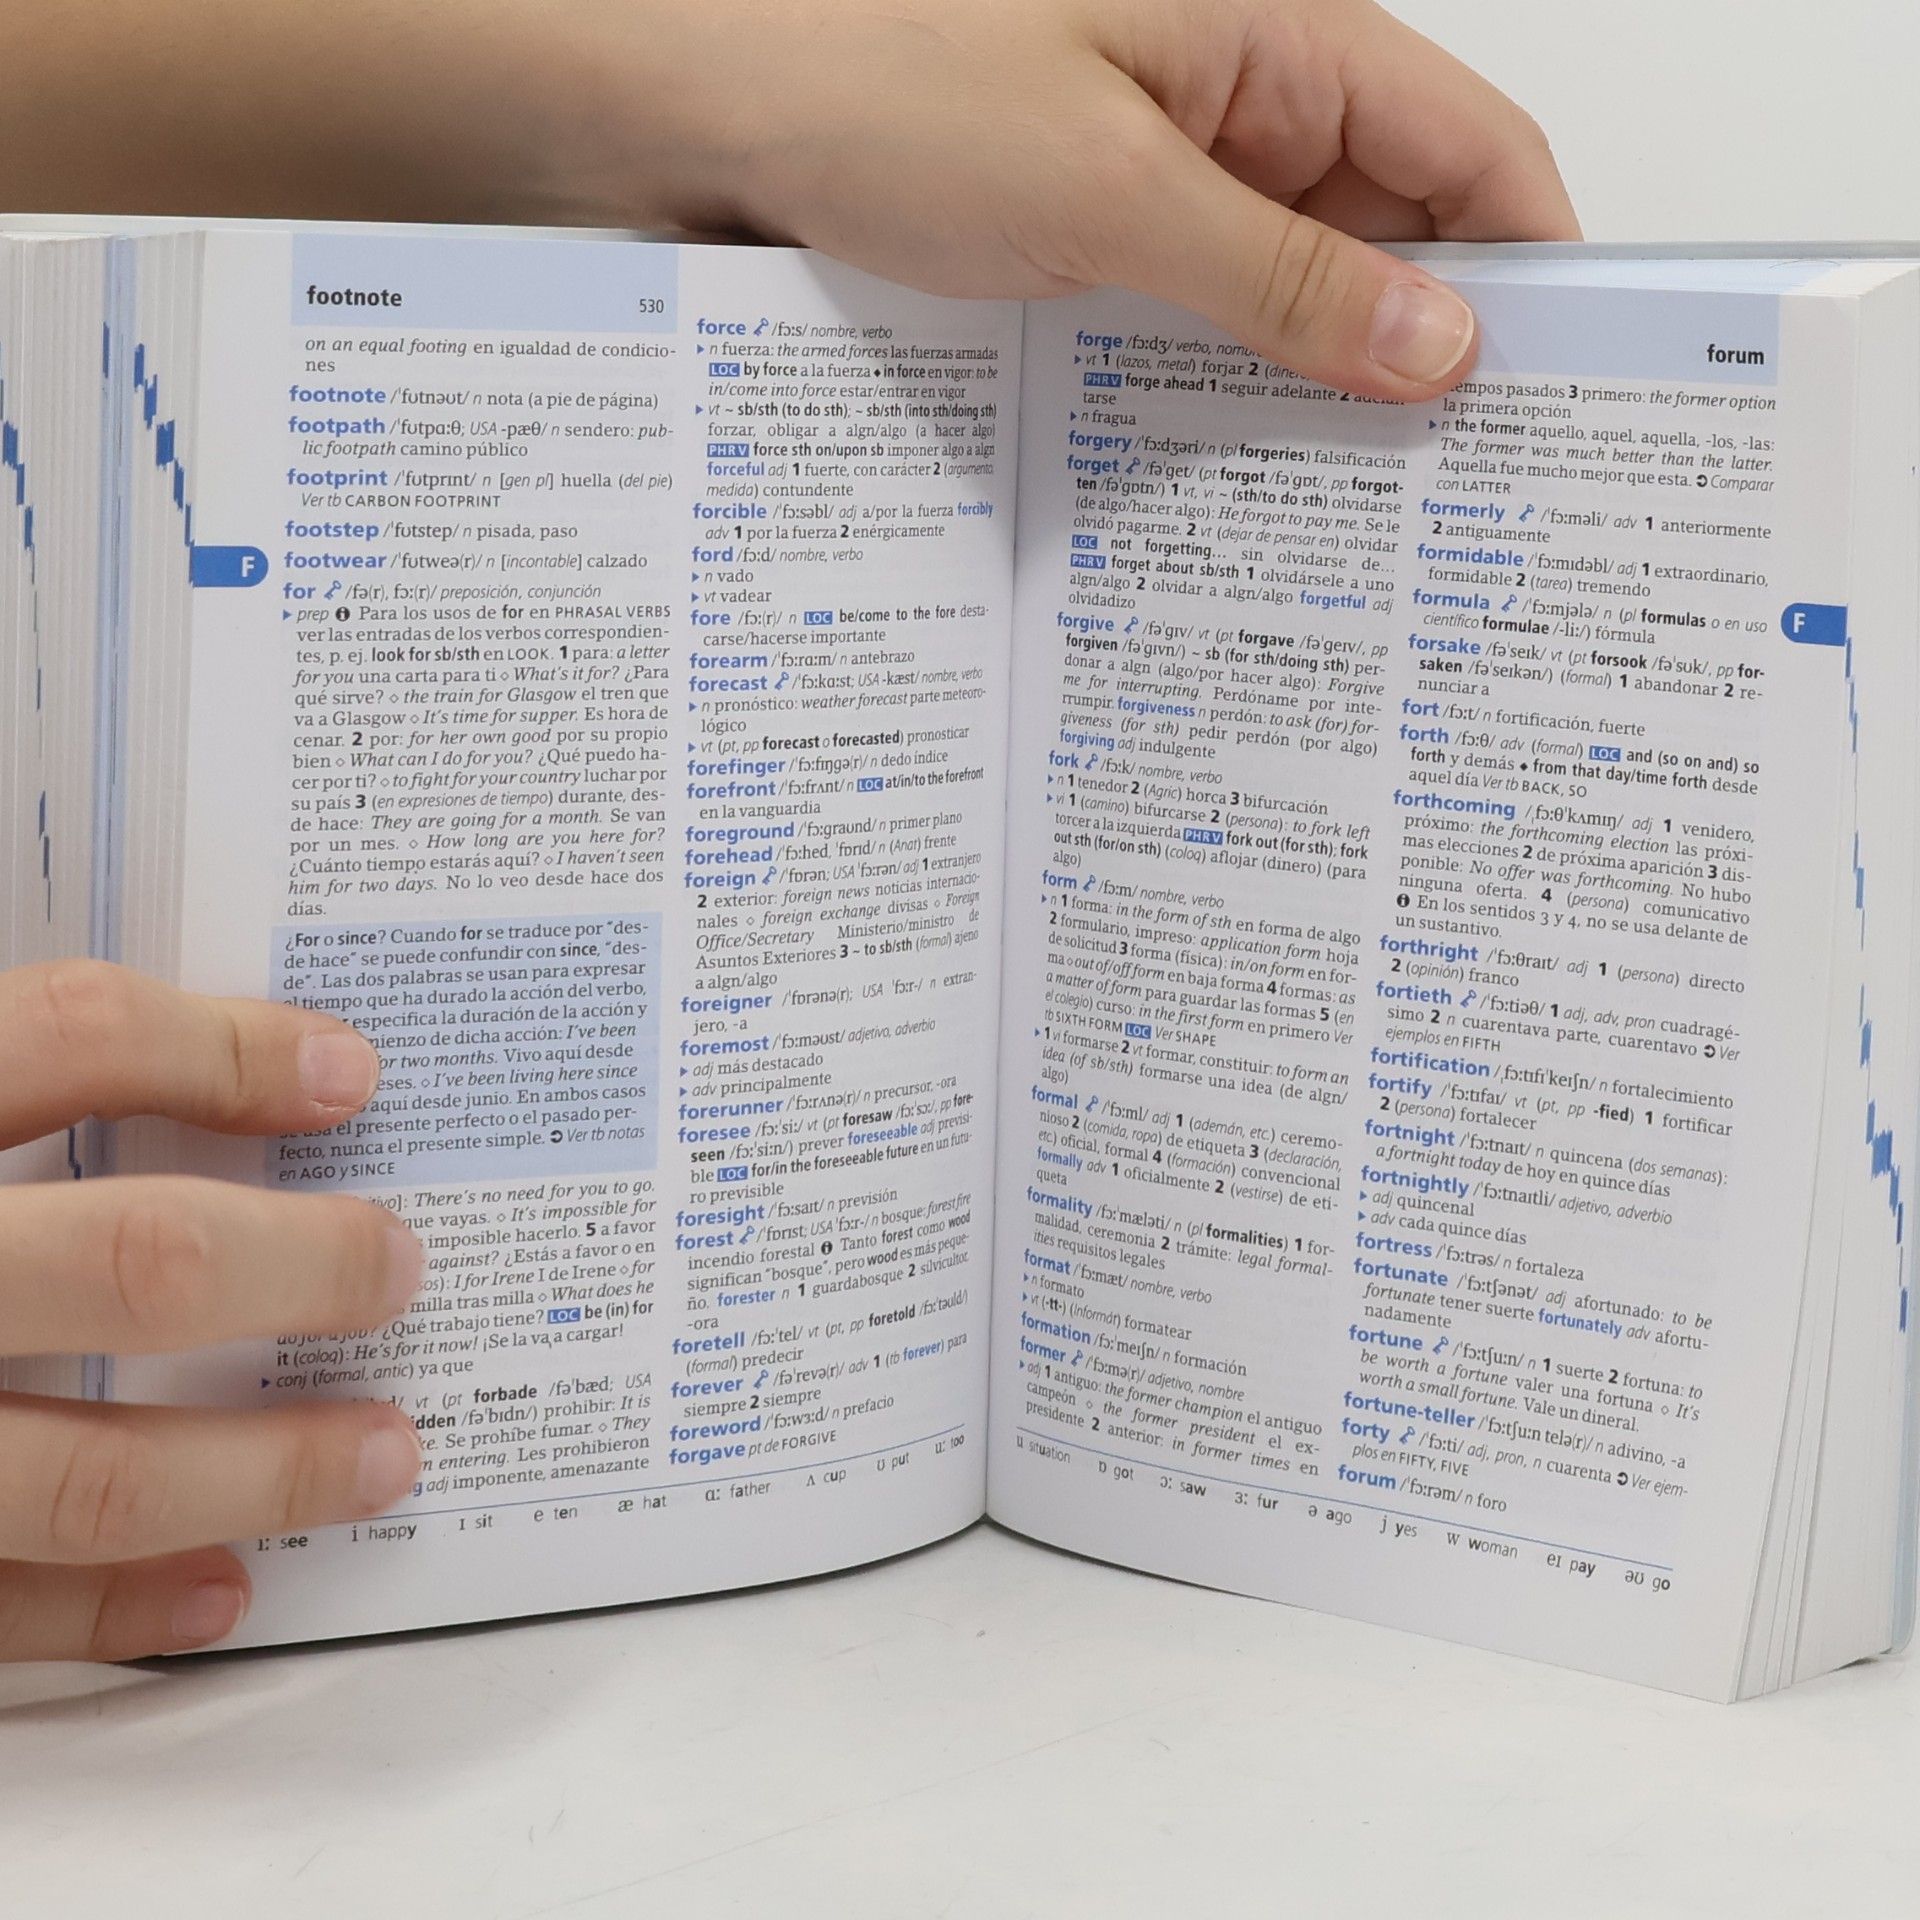 footnote
530
on an equal footing en igualdad de condicio-
nes
footnote /ˈfʊtnəʊt/ n nota (a pie de página)
footpath /ˈfʊtpɑːθ; USA -pæθ/ n sendero: pub-
lic footpath camino público
footprint /ˈfʊtprɪnt/ n [gen pl] huella (del pie)
Ver tb CARBON FOOTPRINT
footstep /ˈfʊtstep/ n pisada, paso
footwear /ˈfʊtweə(r)/ n [incontable] calzado
F
for /fə(r), fɔː(r)/ preposición, conjunción
▸ prep ℹ Para los usos de for en PHRASAL VERBS
ver las entradas de los verbos correspondien-
tes, p. ej. look for sb/sth en LOOK. 1 para: a letter
for you una carta para ti ⋄ What's it for? ¿Para
qué sirve? ⋄ the train for Glasgow el tren que
va a Glasgow ⋄ It's time for supper. Es hora de
cenar. 2 por: for her own good por su propio
bien ⋄ What can I do for you? ¿Qué puedo ha-
cer por ti? ⋄ to fight for your country luchar por
su país 3 (en expresiones de tiempo) durante, des-
de hace: They are going for a month. Se van
por un mes. ⋄ How long are you here for?
¿Cuánto tiempo estarás aquí? ⋄ I haven't seen
him for two days. No lo veo desde hace dos
días.
¿For o since? Cuando for se traduce por "des-
de hace" se puede confundir con since, "des-
de". Las dos palabras se usan para expresar
el tiempo que ha durado la acción del verbo,
especifica la duración de la acción y
de dicha acción: I've been
for two months. Vivo aquí desde
⋄ I've been living here since
aquí desde junio. En ambos casos
se usa el presente perfecto o el pasado per-
fecto, nunca el presente simple. ➲ Ver tb notas
en AGO y SINCE
There's no need for you to go.
que vayas. ⋄ It's impossible for
imposible hacerlo. 5 a favor
against? ¿Estás a favor o en
I for Irene I de Irene ⋄ for
milla tras milla ⋄ What does he
do for a job? ¿Qué trabajo tiene? LOC be (in) for
it (coloq): He's for it now! ¡Se la va a cargar!
▸ conj (formal, antic) ya que
vt (pt forbade /fəˈbæd; USA
/fəˈbɪdn/) prohibir: It is
Se prohíbe fumar. ⋄ They
entering. Les prohibieron
adj imponente, amenazante
force /fɔːs/ nombre, verbo
▸ n fuerza: the armed forces las fuerzas armadas
LOC by force a la fuerza ⬥ in force en vigor: to be
in/come into force estar/entrar en vigor
▸ vt ~ sb/sth (to do sth); ~ sb/sth (into sth/doing sth)
forzar, obligar a algn/algo (a hacer algo)
PHRV force sth on/upon sb imponer algo a algn
forceful adj 1 fuerte, con carácter 2 (argumento,
medida) contundente
forcible /ˈfɔːsəbl/ adj a/por la fuerza forcibly
adv 1 por la fuerza 2 enérgicamente
ford /fɔːd/ nombre, verbo
▸ n vado
▸ vt vadear
fore /fɔː(r)/ n LOC be/come to the fore desta-
carse/hacerse importante
forearm /ˈfɔːrɑːm/ n antebrazo
forecast /ˈfɔːkɑːst; USA -kæst/ nombre, verbo
▸ n pronóstico: weather forecast parte meteoro-
lógico
▸ vt (pt, pp forecast o forecasted) pronosticar
forefinger /ˈfɔːfɪŋgə(r)/ n dedo índice
forefront /ˈfɔːfrʌnt/ n LOC at/in/to the forefront
en la vanguardia
foreground /ˈfɔːgraʊnd/ n primer plano
forehead /ˈfɔːhed, ˈfɒrɪd/ n (Anat) frente
foreign /ˈfɒrən; USA ˈfɔːrən/ adj 1 extranjero
2 exterior: foreign news noticias internacio-
nales ⋄ foreign exchange divisas ⋄ Foreign
Office/Secretary Ministerio/ministro de
Asuntos Exteriores 3 ~ to sb/sth (formal) ajeno
a algn/algo
foreigner /ˈfɒrənə(r); USA ˈfɔːr-/ n extran-
jero, -a
foremost /ˈfɔːməʊst/ adjetivo, adverbio
▸ adj más destacado
▸ adv principalmente
forerunner /ˈfɔːrʌnə(r)/ n precursor, -ora
foresee /fɔːˈsiː/ vt (pt foresaw /fɔːˈsɔː/, pp fore-
seen /fɔːˈsiːn/) prever foreseeable adj previsi-
ble LOC for/in the foreseeable future en un futu-
ro previsible
foresight /ˈfɔːsaɪt/ n previsión
forest /ˈfɒrɪst; USA ˈfɔːr-/ n bosque: forest fire
incendio forestal ℹ Tanto forest como wood
significan "bosque", pero wood es más peque-
ño. forester n 1 guardabosque 2 silvicultor,
-ora
foretell /fɔːˈtel/ vt (pt, pp foretold /fɔːˈtəʊld/)
(formal) predecir
forever /fəˈrevə(r)/ adv 1 (tb for ever) para
siempre 2 siempre
foreword /ˈfɔːwɜːd/ n prefacio
forgave pt de FORGIVE
iː see i happy ɪ sit e ten æ hat ɑː father ʌ cup ʊ put uː too
forum
forge /fɔːdʒ/ verbo,
▸ vt 1 (lazos, metal) forjar 2
PHRV forge ahead 1 seguir adelante 2
tarse
▸ n fragua
forgery /ˈfɔːdʒəri/ n (pl forgeries) falsificación
forget /fəˈget/ (pt forgot /fəˈgɒt/, pp forgot-
ten /fəˈgɒtn/) 1 vt, vi ~ (sth/to do sth) olvidarse
(de algo/hacer algo): He forgot to pay me. Se le
olvidó pagarme. 2 vt (dejar de pensar en) olvidar
LOC not forgetting... sin olvidarse de...
PHRV forget about sb/sth 1 olvidársele a uno
algn/algo 2 olvidar a algn/algo forgetful adj
olvidadizo
forgive /fəˈgɪv/ vt (pt forgave /fəˈgeɪv/, pp
forgiven /fəˈgɪvn/) ~ sb (for sth/doing sth) per-
donar a algn (algo/por hacer algo): Forgive
me for interrupting. Perdóname por inte-
rrumpir. forgiveness n perdón: to ask (for) for-
giveness (for sth) pedir perdón (por algo)
forgiving adj indulgente
fork /fɔːk/ nombre, verbo
▸ n 1 tenedor 2 (Agric) horca 3 bifurcación
▸ vi 1 (camino) bifurcarse 2 (persona): to fork left
torcer a la izquierda PHRV fork out (for sth); fork
out sth (for/on sth) (coloq) aflojar (dinero) (para
algo)
form /fɔːm/ nombre, verbo
▸ n 1 forma: in the form of sth en forma de algo
2 formulario, impreso: application form hoja
de solicitud 3 forma (física): in/on form en for-
ma ⋄ out of/off form en baja forma 4 formas: as
a matter of form para guardar las formas 5 (en
el colegio) curso: in the first form en primero Ver
tb SIXTH FORM LOC Ver SHAPE
▸ 1 vi formarse 2 vt formar, constituir: to form an
idea (of sb/sth) formarse una idea (de algn/
algo)
formal /ˈfɔːml/ adj 1 (ademán, etc.) ceremo-
nioso 2 (comida, ropa) de etiqueta 3 (declaración,
etc.) oficial, formal 4 (formación) convencional
formally adv 1 oficialmente 2 (vestirse) de eti-
queta
formality /fɔːˈmæləti/ n (pl formalities) 1 for-
malidad, ceremonia 2 trámite: legal formal-
ities requisitos legales
format /ˈfɔːmæt/ nombre, verbo
▸ n formato
▸ vt (-tt-) (Informát) formatear
formation /fɔːˈmeɪʃn/ n formación
former /ˈfɔːmə(r)/ adjetivo, nombre
▸ adj 1 antiguo: the former champion el antiguo
campeón ⋄ the former president el ex-
presidente 2 anterior: in former times en
tiempos pasados 3 primero: the former option
la primera opción
▸ n the former aquello, aquel, aquella, -los, -las:
The former was much better than the latter.
Aquella fue mucho mejor que esta. ➲ Comparar
con LATTER
formerly /ˈfɔːməli/ adv 1 anteriormente
2 antiguamente
formidable /ˈfɔːmɪdəbl/ adj 1 extraordinario,
formidable 2 (tarea) tremendo
formula /ˈfɔːmjələ/ n (pl formulas o en uso
científico formulae /-liː/) fórmula
F
forsake /fəˈseɪk/ vt (pt forsook /fəˈsʊk/, pp for-
saken /fəˈseɪkən/) (formal) 1 abandonar 2 re-
nunciar a
fort /fɔːt/ n fortificación, fuerte
forth /fɔːθ/ adv (formal) LOC and (so on and) so
forth y demás ⬥ from that day/time forth desde
aquel día Ver tb BACK, SO
forthcoming /ˌfɔːθˈkʌmɪŋ/ adj 1 venidero,
próximo: the forthcoming election las próxi-
mas elecciones 2 de próxima aparición 3 dis-
ponible: No offer was forthcoming. No hubo
ninguna oferta. 4 (persona) comunicativo
ℹ En los sentidos 3 y 4, no se usa delante de
un sustantivo.
forthright /ˈfɔːθraɪt/ adj 1 (persona) directo
2 (opinión) franco
fortieth /ˈfɔːtiəθ/ 1 adj, adv, pron cuadragé-
simo 2 n cuarentava parte, cuarentavo ➲ Ver
ejemplos en FIFTH
fortification /ˌfɔːtɪfɪˈkeɪʃn/ n fortalecimiento
fortify /ˈfɔːtɪfaɪ/ vt (pt, pp -fied) 1 fortificar
2 (persona) fortalecer
fortnight /ˈfɔːtnaɪt/ n quincena (dos semanas):
a fortnight today de hoy en quince días
fortnightly /ˈfɔːtnaɪtli/ adjetivo, adverbio
▸ adj quincenal
▸ adv cada quince días
fortress /ˈfɔːtrəs/ n fortaleza
fortunate /ˈfɔːtʃənət/ adj afortunado: to be
fortunate tener suerte fortunately adv afortu-
nadamente
fortune /ˈfɔːtʃuːn/ n 1 suerte 2 fortuna: to
be worth a fortune valer una fortuna ⋄ It's
worth a small fortune. Vale un dineral.
fortune-teller /ˈfɔːtʃuːn telə(r)/ n adivino, -a
forty /ˈfɔːti/ adj, pron, n cuarenta ➲ Ver ejem-
plos en FIFTY, FIVE
forum /ˈfɔːrəm/ n foro
u situation ɒ got ɔː saw ɜː fur ə ago j yes w woman eɪ pay əʊ go